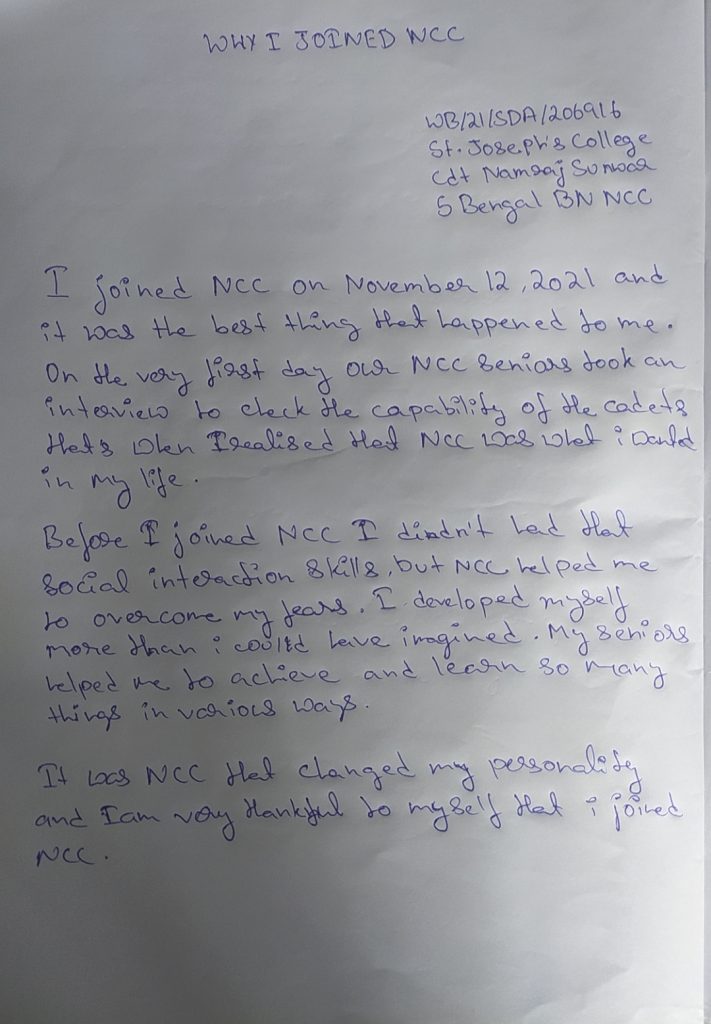 WHY I JOINED NCC
WB/21/SDA/206916
St. Joseph's College
Cdt Namraj Sunwar
5 Bengal BN NCC
I joined NCC on November 12, 2021 and
it was the best thing that happened to me.
On the very first day our NCC Seniors took an
interview to check the capability of the cadets
thats when I realised that NCC was what i wanted
in my life.
Before I joined NCC I didn't had that
social interaction skills, but NCC helped me
to overcome my fears. I developed myself
more than i could have imagined. My seniors
helped me to achieve and learn so many
things in various ways.
It was NCC that changed my personality
and I am very thankful to myself that i joined
NCC.